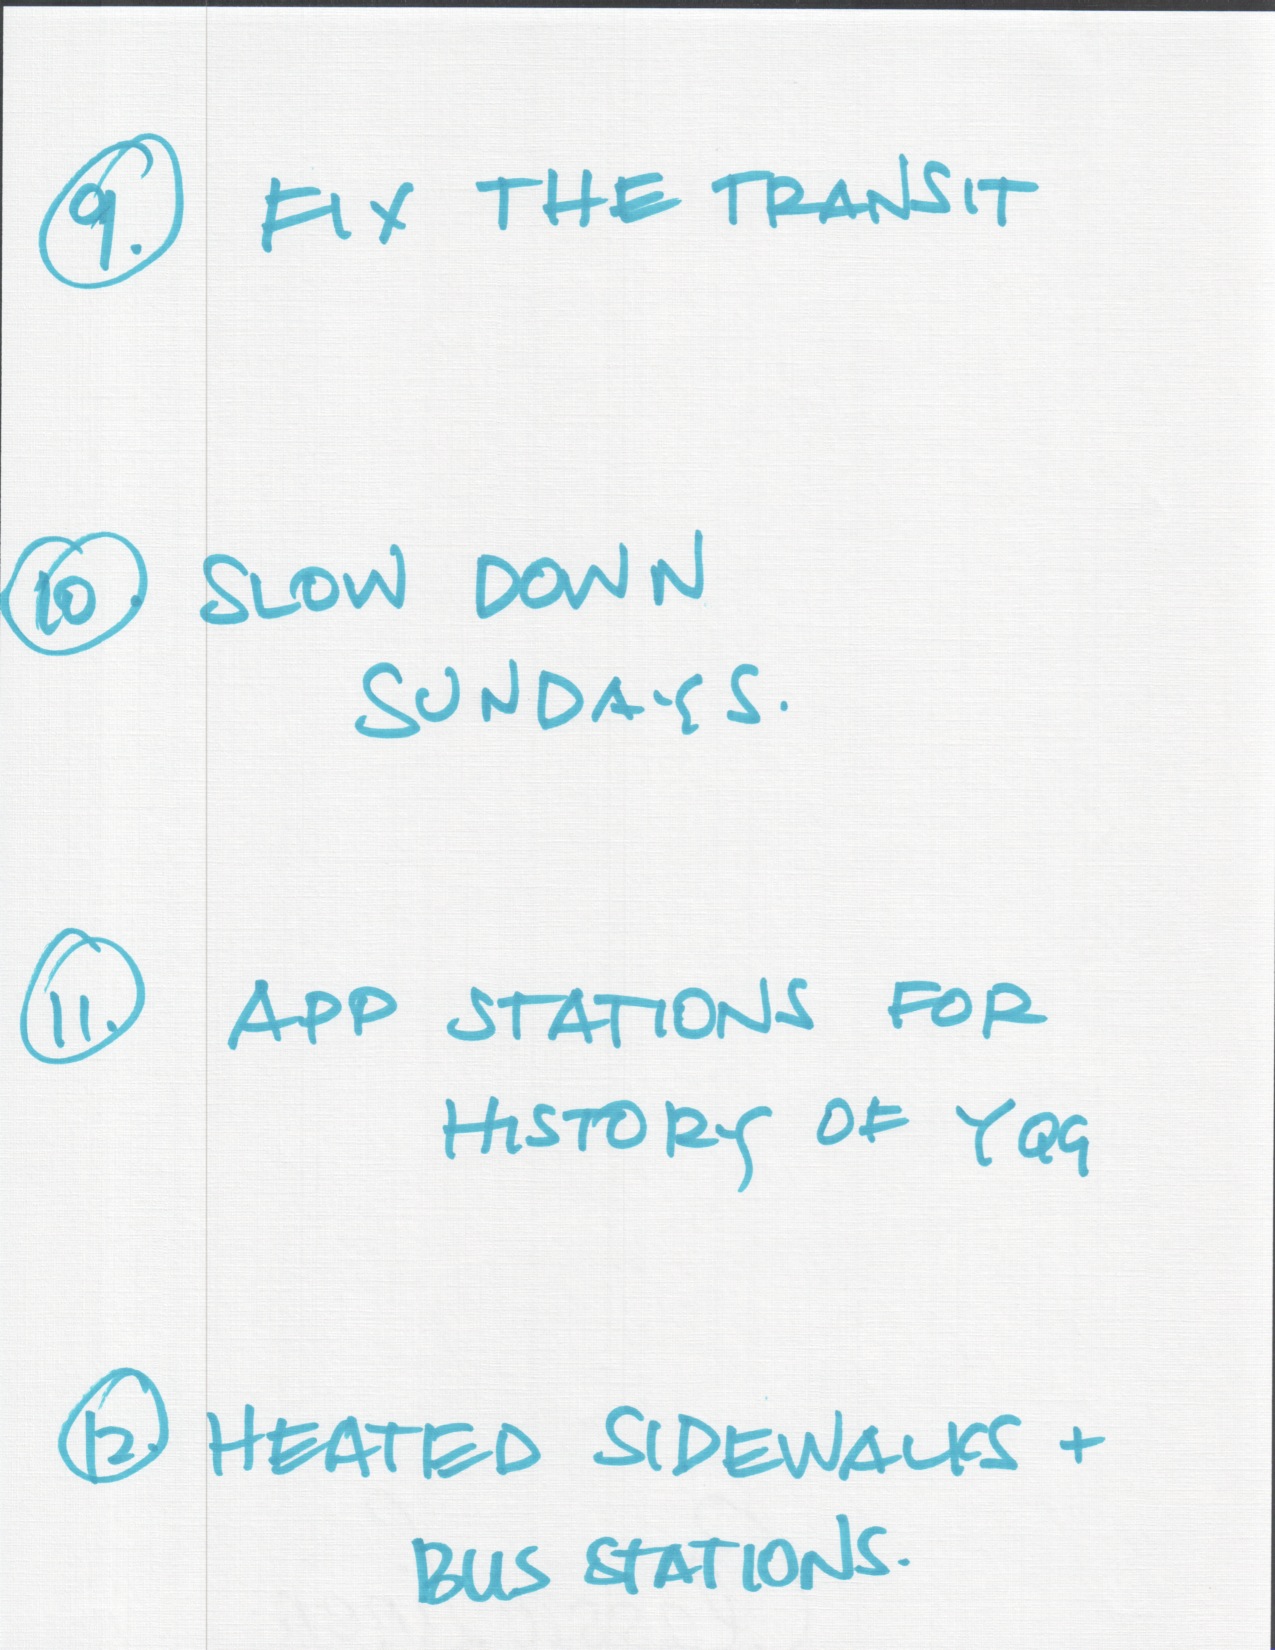 9. FIX THE TRANSIT
10. SLOW DOWN
SUNDAYS.
11. APP STATIONS FOR
HISTORY OF YQG
12. HEATED SIDEWALKS +
BUS STATIONS.